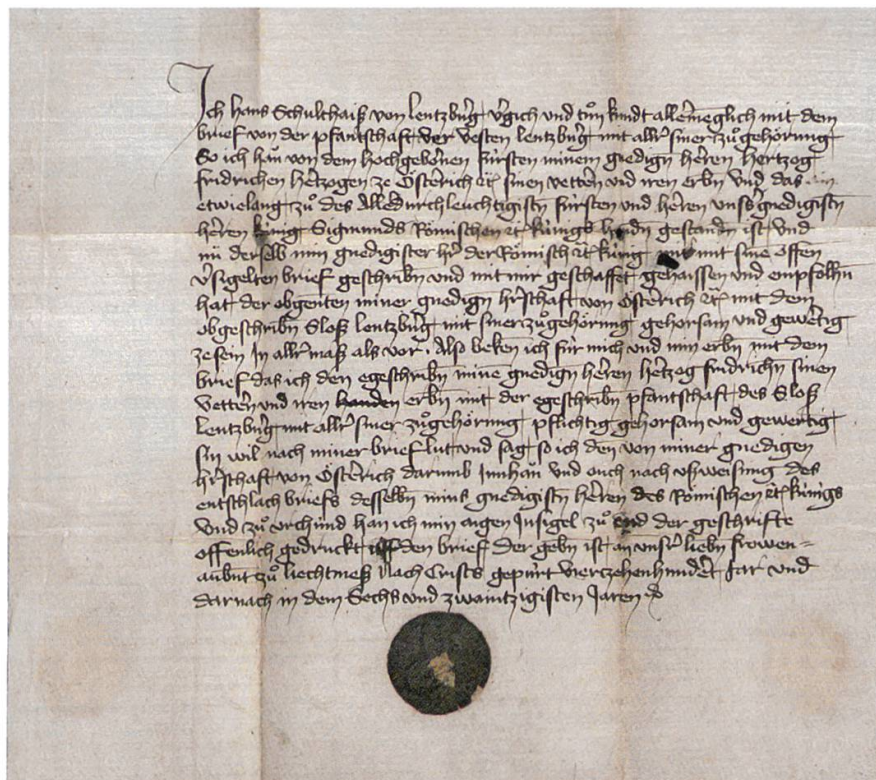 Ich hans Schulthaiß von lentzburg v̓gich und tuͦn kundt allermeglich mit dem
brief von der pfantschaft der vesten lentzburg mit allr̓ siner zuͦgehoͤrung
So ich han von dem hochgebornen fuͤrsten minem gnedign herren hertzog
fridrichen hertzogen ze Oͤsterich ꝛc sinen vettern und iren erbn und das
etwielang zuͦ des Alledurchleuchtigistn fuͤrsten und herren unsers gnedigistn
herren kuͤnig Sigmunds Roͤmischen ꝛc kuͤnigs handn gestandn ist und
nu derselb min gnedigister hr̓ der Roͤmisch ꝛc kuͤnig mit sine offen
v̓sigelten brief geschribn und mit mir geschaffet gehaissen und empfolhn
hat der obgenten miner gnedign hr̓schaft von Oͤsterich ꝛc mit dem
obgeschribn Sloß lentzburg mit siner zuͦgehoͤrung gehorsam und gewertig
ze sein In allr̓ maß als vor . Also beken ich fuͤr mich und min erbn mit dem
brief das ich den egeschribn mine gnedign herren hertzog fridrichn sinen
vettern und iren handen erbn mit der egeschribn pfantschaft des Sloß
lentzburg mit allr̓ siner zuͦgehoͤrung pflichtig gehorsam und gewertig
sin wil nach miner brief lut und sag so ich den von miner gnedigen
hr̓schaft von Oͤsterich darumb Innhan und ouch nach ußweisung des
entschlach briefs desselbn mins gnedigistn herren des Roͤmischen ꝛc kuͤnigs
Und zuͦ urchund han ich min aigen Insigel zuͦ end der geschrifte
offenlich gedruckt uff den brief der gebn ist an unsr̓ liebn frowen=
aubnt zuͦ liechtmeß Nach Crists gepurt vierzehenhundert Jar und
darnach in dem Sechs und zwaintzigisten Jaren